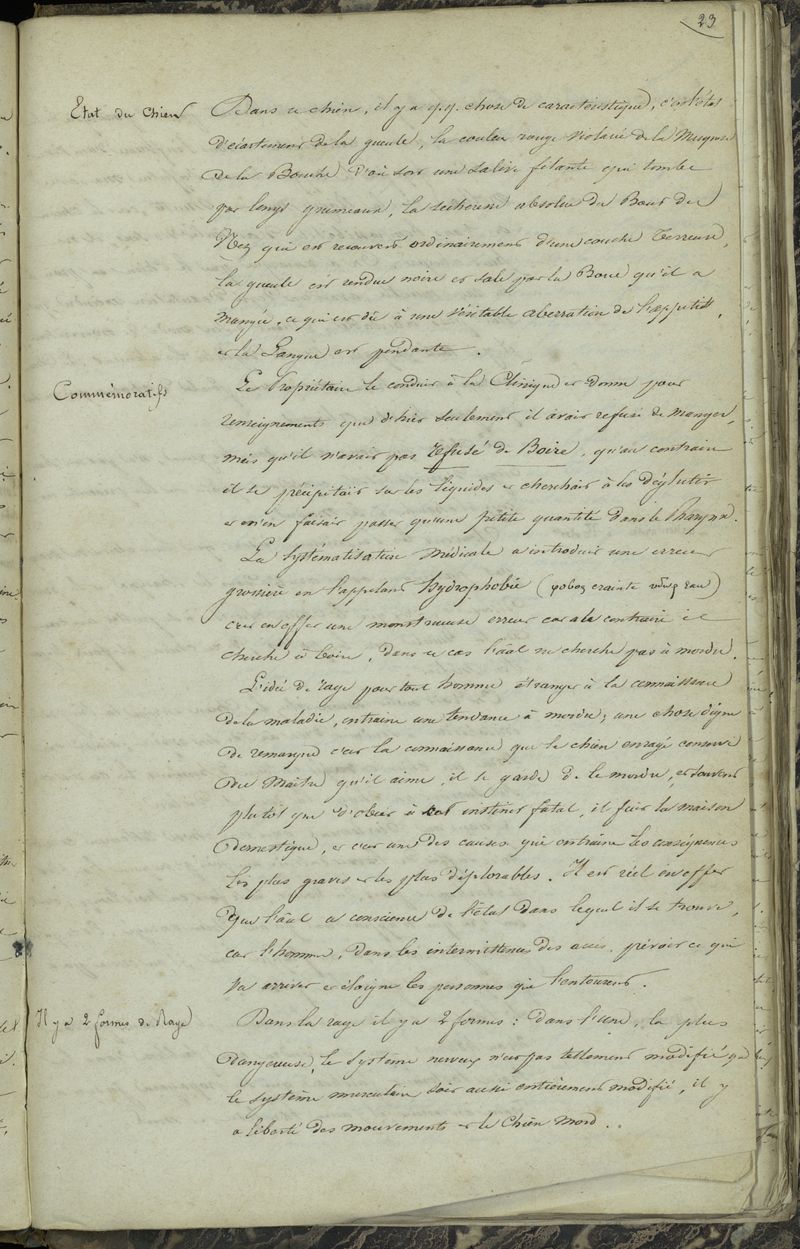 23
Etat du Chien
Dans ce chien, il y a q.q. chose de caractéristique, c'est l'état
d'écartement de la gueule, la couleur rouge violacée de la Muqueuse
de la Bouche d'où sort une salive filante qui tombe
par longs grumeaux, la sécheresse absolue du Bout du
Nez qui est recouvert ordinairement d'une couche terreuse,
la gueule est rendue noire et sale par la Boue qu'il a
mangée, ce qui est dû à une véritable aberration de l'appetit,
et la Langue est pendante.
Commémoratifs
Le Propriétaire le conduit à la Clinique et donne pour
renseignements que d'hier seulement il avait refusé de manger,
mais qu'il n'avait pas refusé de Boire, qu'au contraire
il se précipitait sur les liquides et cherchait à les déglutir
et n'en faisait passer qu'une petite quantité dans le Pharynx.
La Systématisation médicale a introduit une erreur
grossière en l'appelant hydrophobie (φοβος crainte υδωρ eau)
c'est en effet une monstrueuse erreur car au contraire il
cherche à boire, dans ce cas l'aâl ne cherche pas à mordre.
L'idée de rage pour tout homme étranger à la connaissance
de la maladie, entraine une tendance à mordre; une chose digne
de remarque c'est la connaissance que le chien enragé conserve
du Maître qu'il aime, il se garde de le mordre, et souvent
plutôt que d'obéir à cet instinct fatal, il fuit la maison
domestique, et c'est une des causes qui entraîne les conséquences
les plus graves et les plus déplorables. Il est réel en effet
que l'aâl a conscience de l'état dans lequel il se trouve,
car l'homme, dans les intermittences des accès, prévoit ce qui
va arriver et éloigne les personnes qui l'entourent.
Il y a 2 formes de Rage
Dans la rage il y a 2 formes: dans l'une, la plus
dangereuse, le système nerveux n'est pas tellement modifié que
le système musculaire soit aussi entièrement modifié, il y
a liberté des mouvements et le Chien Mord.